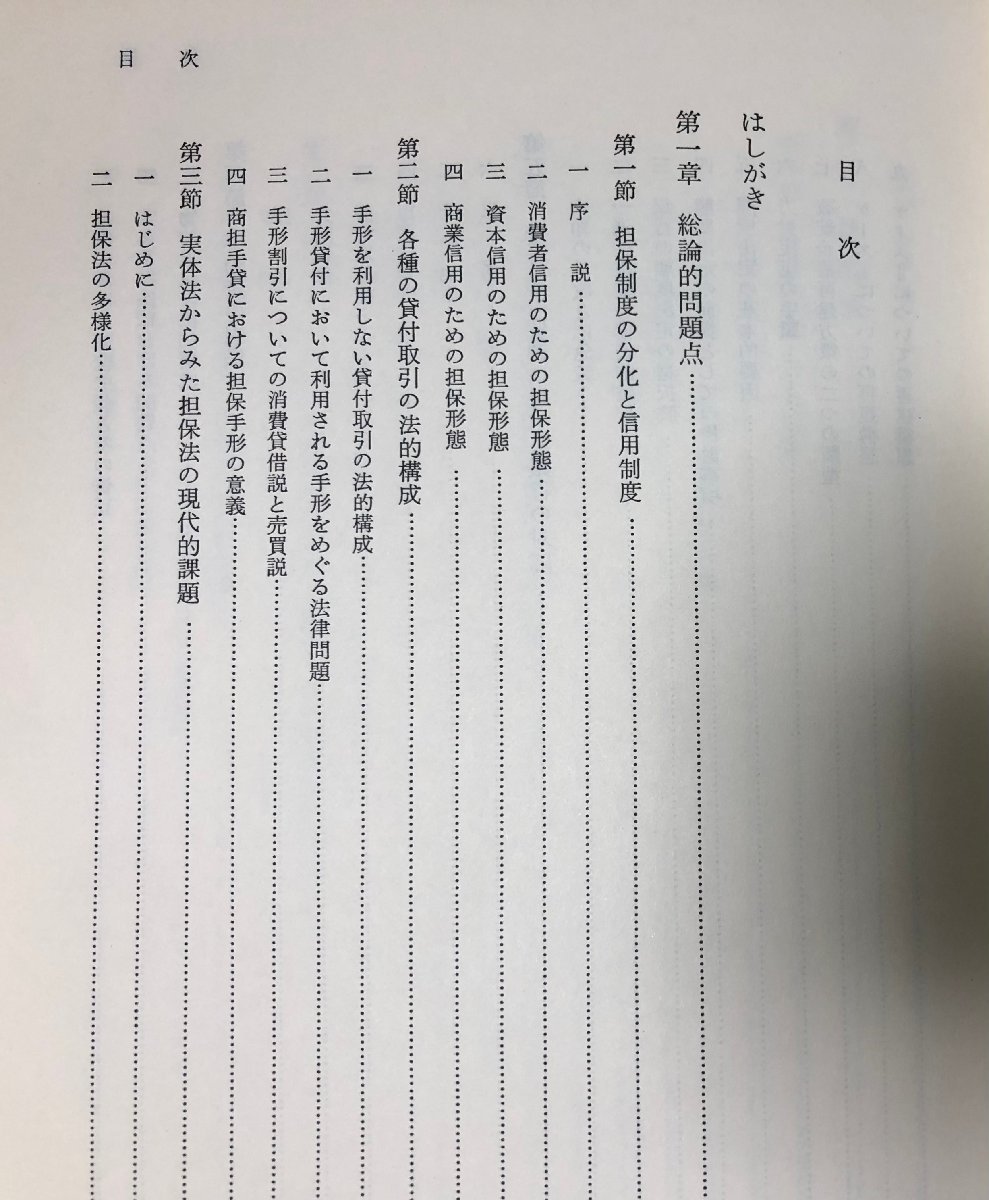 目　次
目　次
はしがき
第一章　総論的問題点……………………
第一節　担保制度の分化と信用制度……………………
一　序　説……………………
二　消費者信用のための担保形態……………………
三　資本信用のための担保形態……………………
四　商業信用のための担保形態……………………
第二節　各種の貸付取引の法的構成……………………
一　手形を利用しない貸付取引の法的構成……………………
二　手形貸付において利用される手形をめぐる法律問題……………………
三　手形割引についての消費貸借説と売買説……………………
四　商担手貸における担保手形の意義……………………
第三節　実体法からみた担保法の現代的課題……………………
一　はじめに……………………
二　担保法の多様化……………………